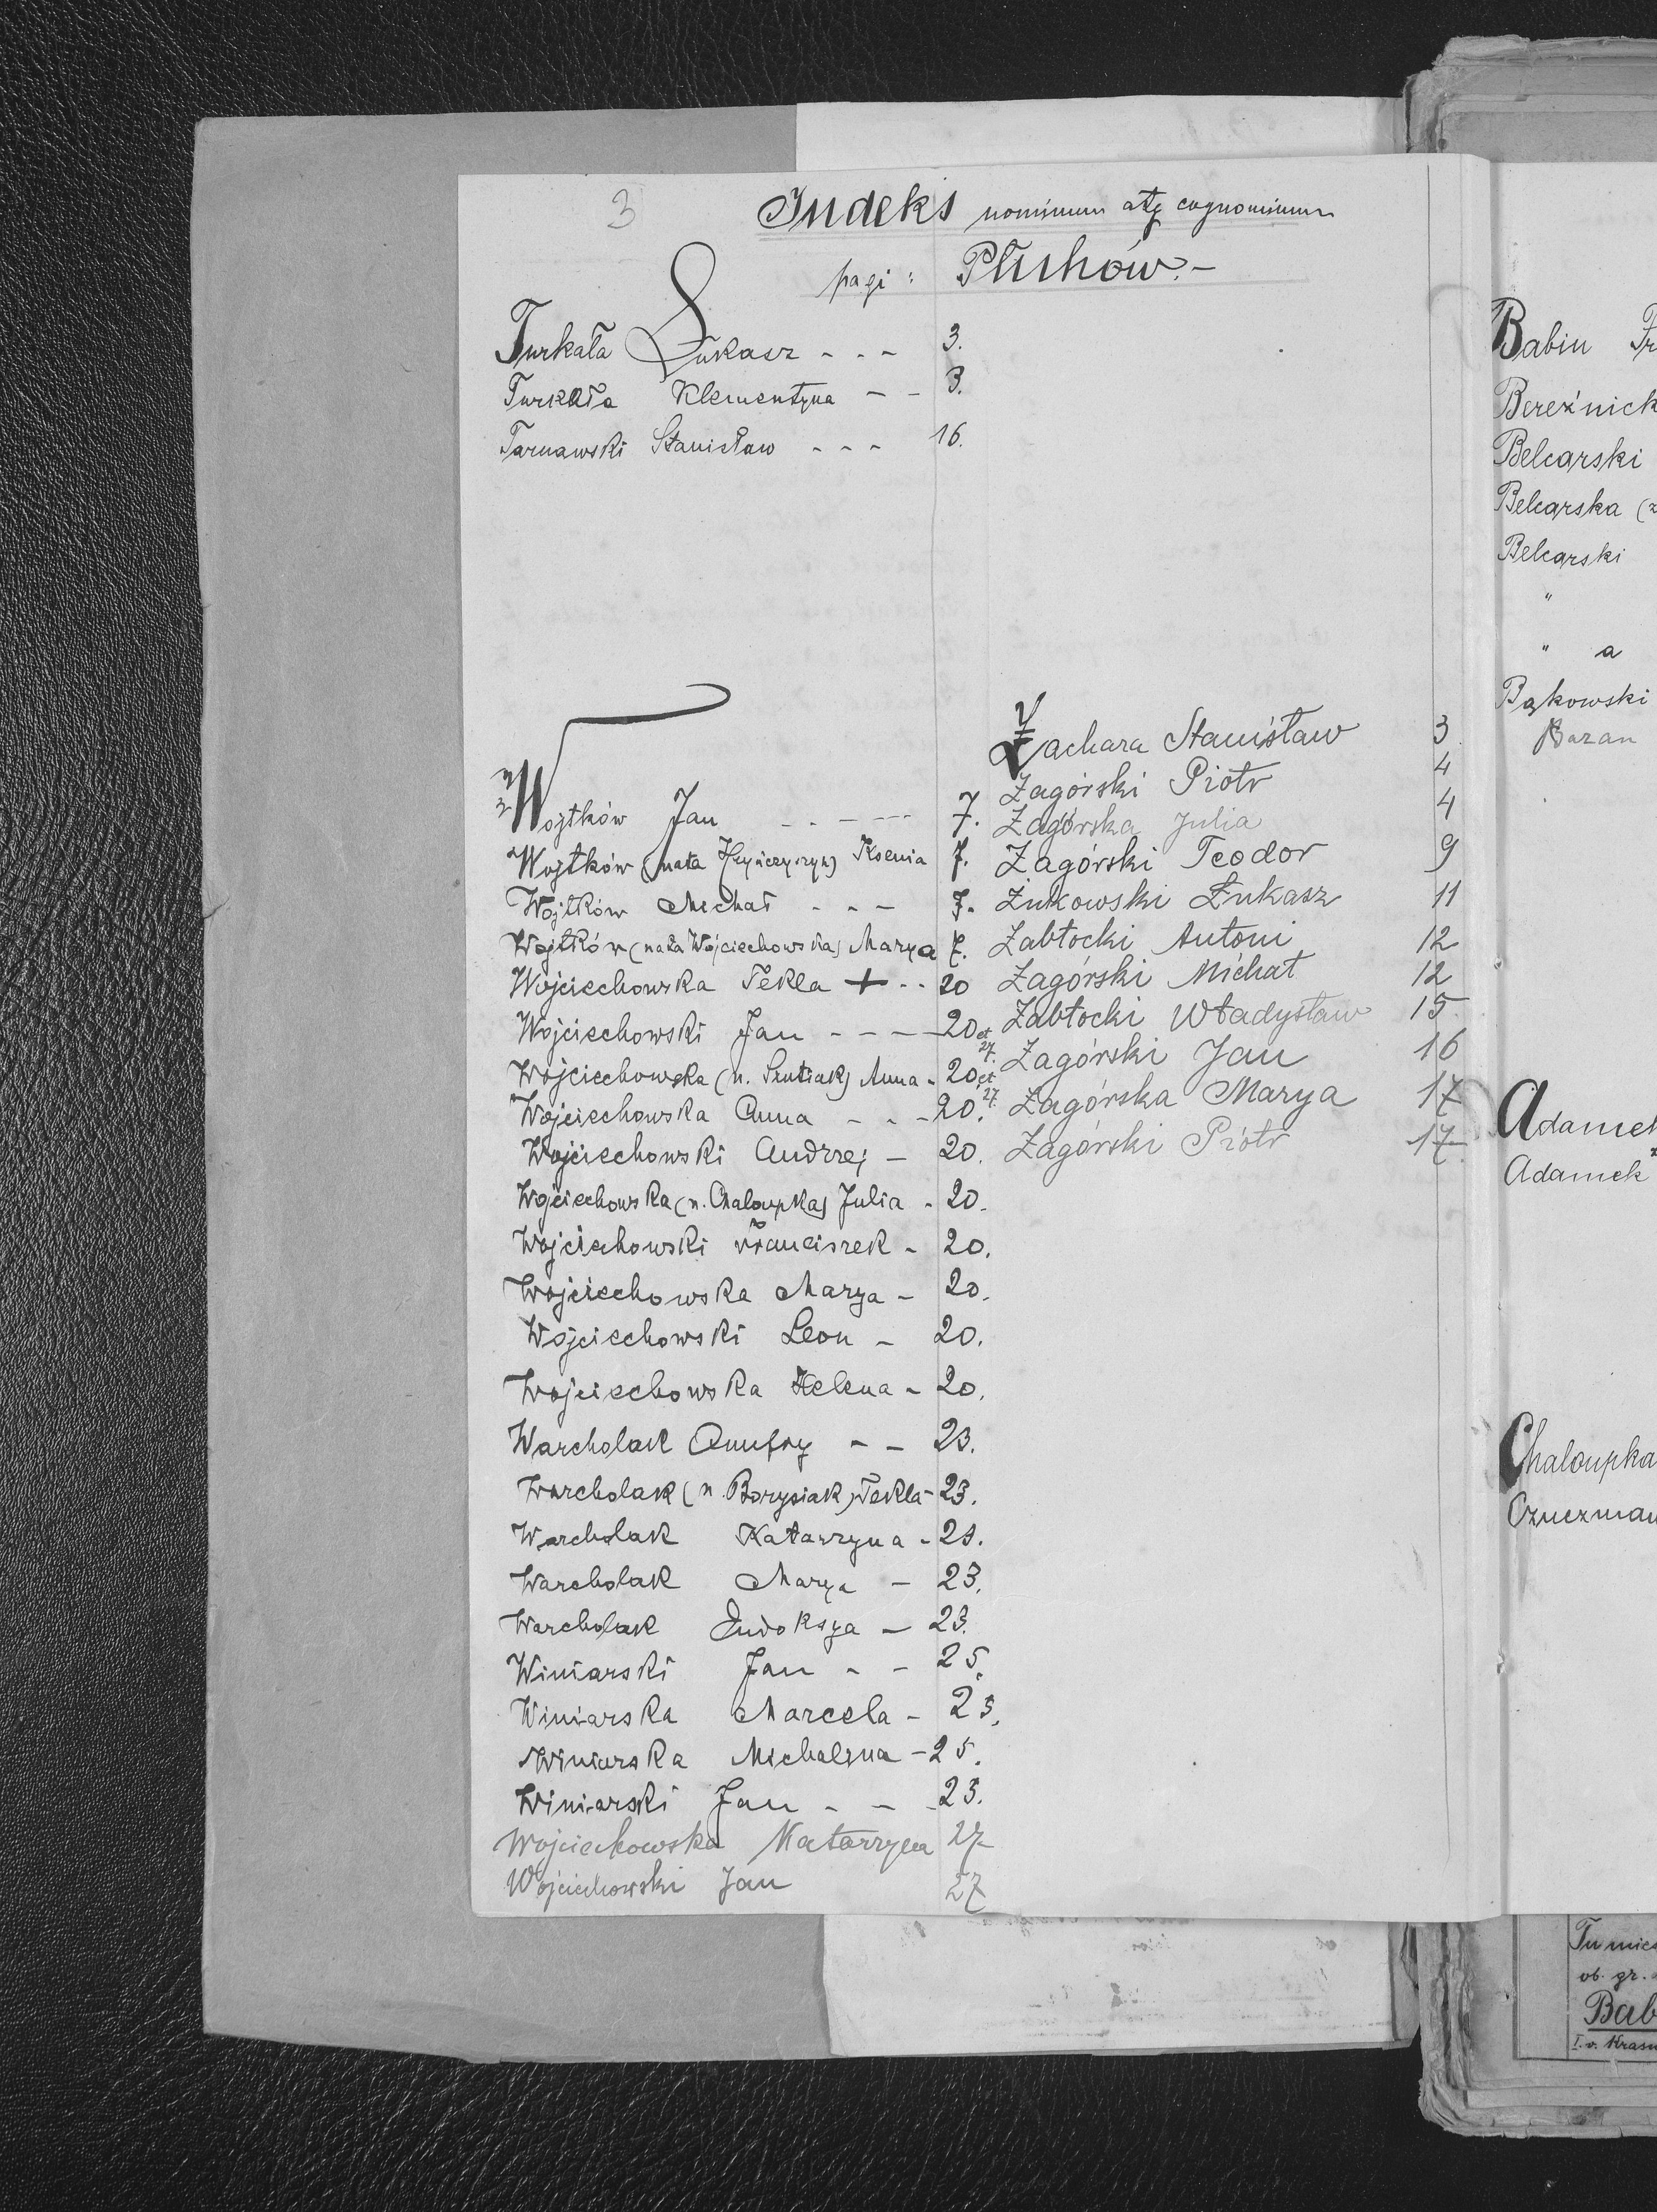 3
Indeks nominum atq cognominum
pagi: Płuhów.-
Turkała Łukasz - - - 3.
Turkała Klementyna - - 3.
Tarnawski Stanisław - - - 16.
Wojtków Jan - - - - - 7.
Wojtków (nata) Ksenia 7.
Wojtków Michał - - - 7.
Wojtków (nata Wójciechowska) Marya 7.
Wojciechowska Tekla + - - 20
Wojciechowski Jan - - - - 20 et 27.
Wojciechowska (n. Szutiak) Anna - 20 et 27.
Wojciechowska Anna - - - 20.
Wojciechowski Andrzej - 20.
Wojciechowska (n. Chaloupka) Julia - 20.
Wojciechowski Franciszek - 20.
Wojciechowska Marya - 20.
Wojciechowski Leon - 20.
Wojciechowska Helena - 20.
Warcholak Onufry - - 23.
Warcholak (n. Borysiak) Tekla - 23.
Warcholak Katarzyna - 23.
Warcholak Marya - 23.
Warcholak Eudoksya - 23.
Winiarski Jan - - 25.
Winiarska Marcela - 25.
Winiarska Michalina - 25.
Winiarski Jan - - - 25.
Wojciechowska Katarzyna 27
Wojciechowski Jan 27
Zachara Stanisław 3
Zagórski Piotr 4
Zagórska Julia 4
Zagórski Teodor 9
Żukowski Łukasz 11
Zabłocki Antoni 12
Zagórski Michał 12
Zabłocki Władysław 15
Zagórski Jan 16
Zagórska Marya 17
Zagórski Piotr 17
Babin Fr
Bereźnick
Belcarski
Belcarska (z
Belcarski
"
" a
Bąkowski
Baran
Adamek
Adamek
Chaloupka
Czuczman
ob. gr.
Bab